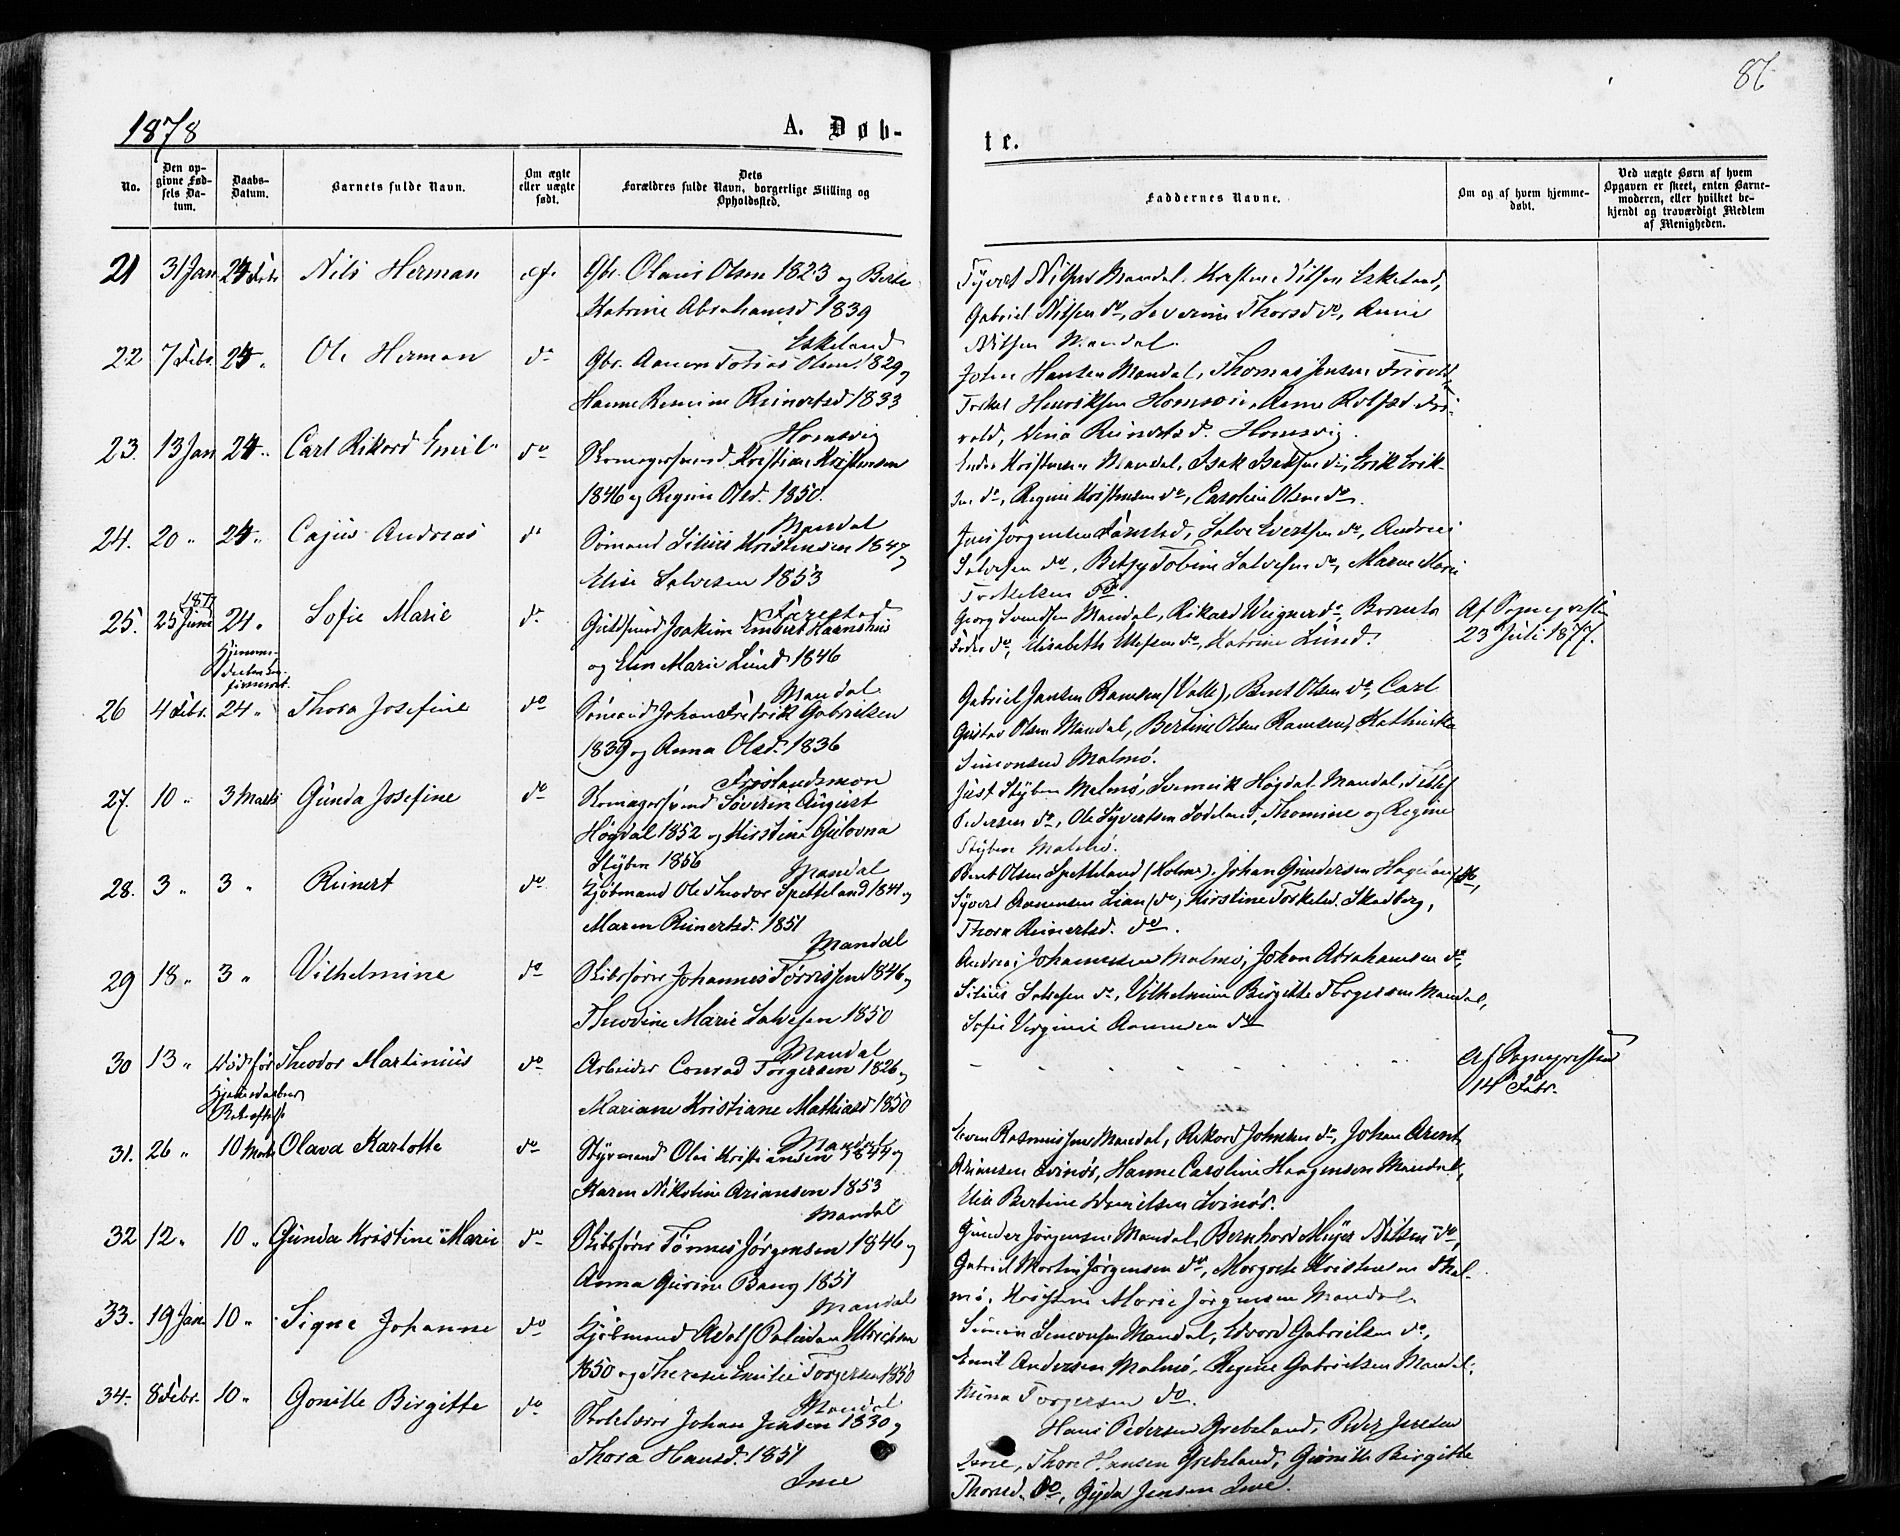 86
1878
A. Døb-
te.
No.
Den op-
givne Fød-
sels Da-
tum.
Daabs-
Datum.
Barnets fulde Navn.
Om ægte
eller uægte
født.
Dets
Forældres fulde Navn, borgerlige Stilling og
Opholdssted.
Faddernes Navne.
Om og af hvem hjemme-
døbt.
Ved uægte Børn af hvem
Opgaven er skeet, enten Barne-
moderen, eller hvilket be-
kjendt og troværdigt Medlem
af Menigheden.
21 31 Jan 24 Febr Nils Herman Gbr. Olaus Olsen 1823 og Berte
Katrine Abrahamsd 1839
Eskeland
Mandal. Eskeland,
Gabriel Nilsen do, Severine Thorsd do, Anne
Nilsen Mandal.
22 7 Febr. 24 " Ole Herman do Gbr. Aanen Tobias Olsen 1829 og
Hanne Reinertsd 1833
Homsvig
John Hansen Mandal, Thomas Jensen
Henriksen
Reinertsd. Homsvig.
23. 13 Jan 24 " Carl Rikard Emil do Skomagersvend Kristian Kristensen
1846 og Regine Olsd. 1850.
Mandal
Kristensen Mandal, Isak Isaksen do, Erik Erik-
sen do, Regine Kristensen do, Caroline Olsen do.
24. 20 " 24 " Cajus Andreas do Sømand Kristensen 1847 og
Elise Salvesen 1853
Færestad
Jens Jørgensen Færestad, Salve Evertsen do, Andreas
Salvesen do, Betsy Tobine Salvesen do, Maren Marie
Torkelsen do.
25. 1877 25 Juni 24 " Sofie Marie do Guldsmed Joakim Embert
og Elen Marie Lund 1846
Mandal
Georg Svendsen Mandal, Rikard Weigner do, Barnets
Fader do, Elisabeth Ellefsen do, Katrine Lund.
Af Sognepresten
23 Juli 1877.
26 4 Febr. 24 " Thora Josefine do Sømand Johan Fredrik Gabrielsen
1839 og Anna Olsd. 1836
Gabriel Jansen Ramsen (Valle), Bent Olsen do, Carl
Gustav Olsen Mandal, Bertine Olsen Kathinka
Simonsen Malmø.
27. 10 " 3 Marts Gunda Josefine do Skomagersvend Søverin August
Høgdal 1852 og Kirstine Gulovna
Styben 1856
Mandal
Just Styben Malmø, Høgdal Mandal,
Pedersen do, Ole Syvertsen Thomine og Regine
Styben Malmø.
28. 3 " 3 " Reinert do Kjøbmand Ole Theodor Spetteland 1841 og
Maren Reinertsd. 1851
Mandal
Bent Olsen Spetteland (Holme), Johan Gundersen
Syvert Aanensen Lian (do), Kirstine Torkelsd. Skadberg,
Thora Reinertsd. do.
29 18 " 3 " Vilhelmine do Skibsfører Johannes Tørrissen 1846 og
Theodine Marie Salvesen 1850
Mandal
Andreas Johannessen Malmø, Johan Abrahamsen do,
Salvesen do, Vilhelmine Birgitte Torgersen Mandal,
Sofie Virginie Aanensen do
30 13 " Død før Theodor Martinius do Arbeider Conrad Torgersen 1826 og
Mariane Kristiane Mathiasd 1850
Mandal
Af Sognepresten
14 Febr.
31. 26 " 10 Marts Olava Karlotte do Styrmand Olai Kristiansen 1844 og
Karen Nikoline Ariansen 1853
Mandal
Even Rasmussen Mandal, Rikard Johnsen do, Johan Arent
Ariansen Svinør, Hanne Caroline Haagensen Mandal,
Elise Bertine Svinør.
32 12 " 10 " Gunda Kristine Marie do Skibsfører Tønnes Jørgensen 1846 og
Anna Gurine Bang 1851
Mandal
Gunder Jørgensen Mandal, Bernhard Meyer Nilsen do,
Gabriel Martin Jørgensen do, Margrete Kristensen Mal-
mø, Kristine Marie Jørgensen Mandal
33. 19 Jan 10 " Signe Johanne do Kjøbmand Adolf Paludan Ulrichsen
1850 og Therese Emilie Torgersen 1850
Mandal
Simon Simonsen Mandal, Edvard Gabrielsen do,
Emil Andersen Malmø, Regine Gabrielsen Mandal,
Mina Torgersen do.
34. 8 Febr. 10 " Gonille Birgitte do Skolelærer Johan Jensen 1830 og
Thora Hansd. 1851
Ime
Hans Pedersen Grebeland, Peder Jensen
Ime, Thore Hansen Grebeland, Gunille Birgitte
Thorsd. do, Gyda Jensen Ime.